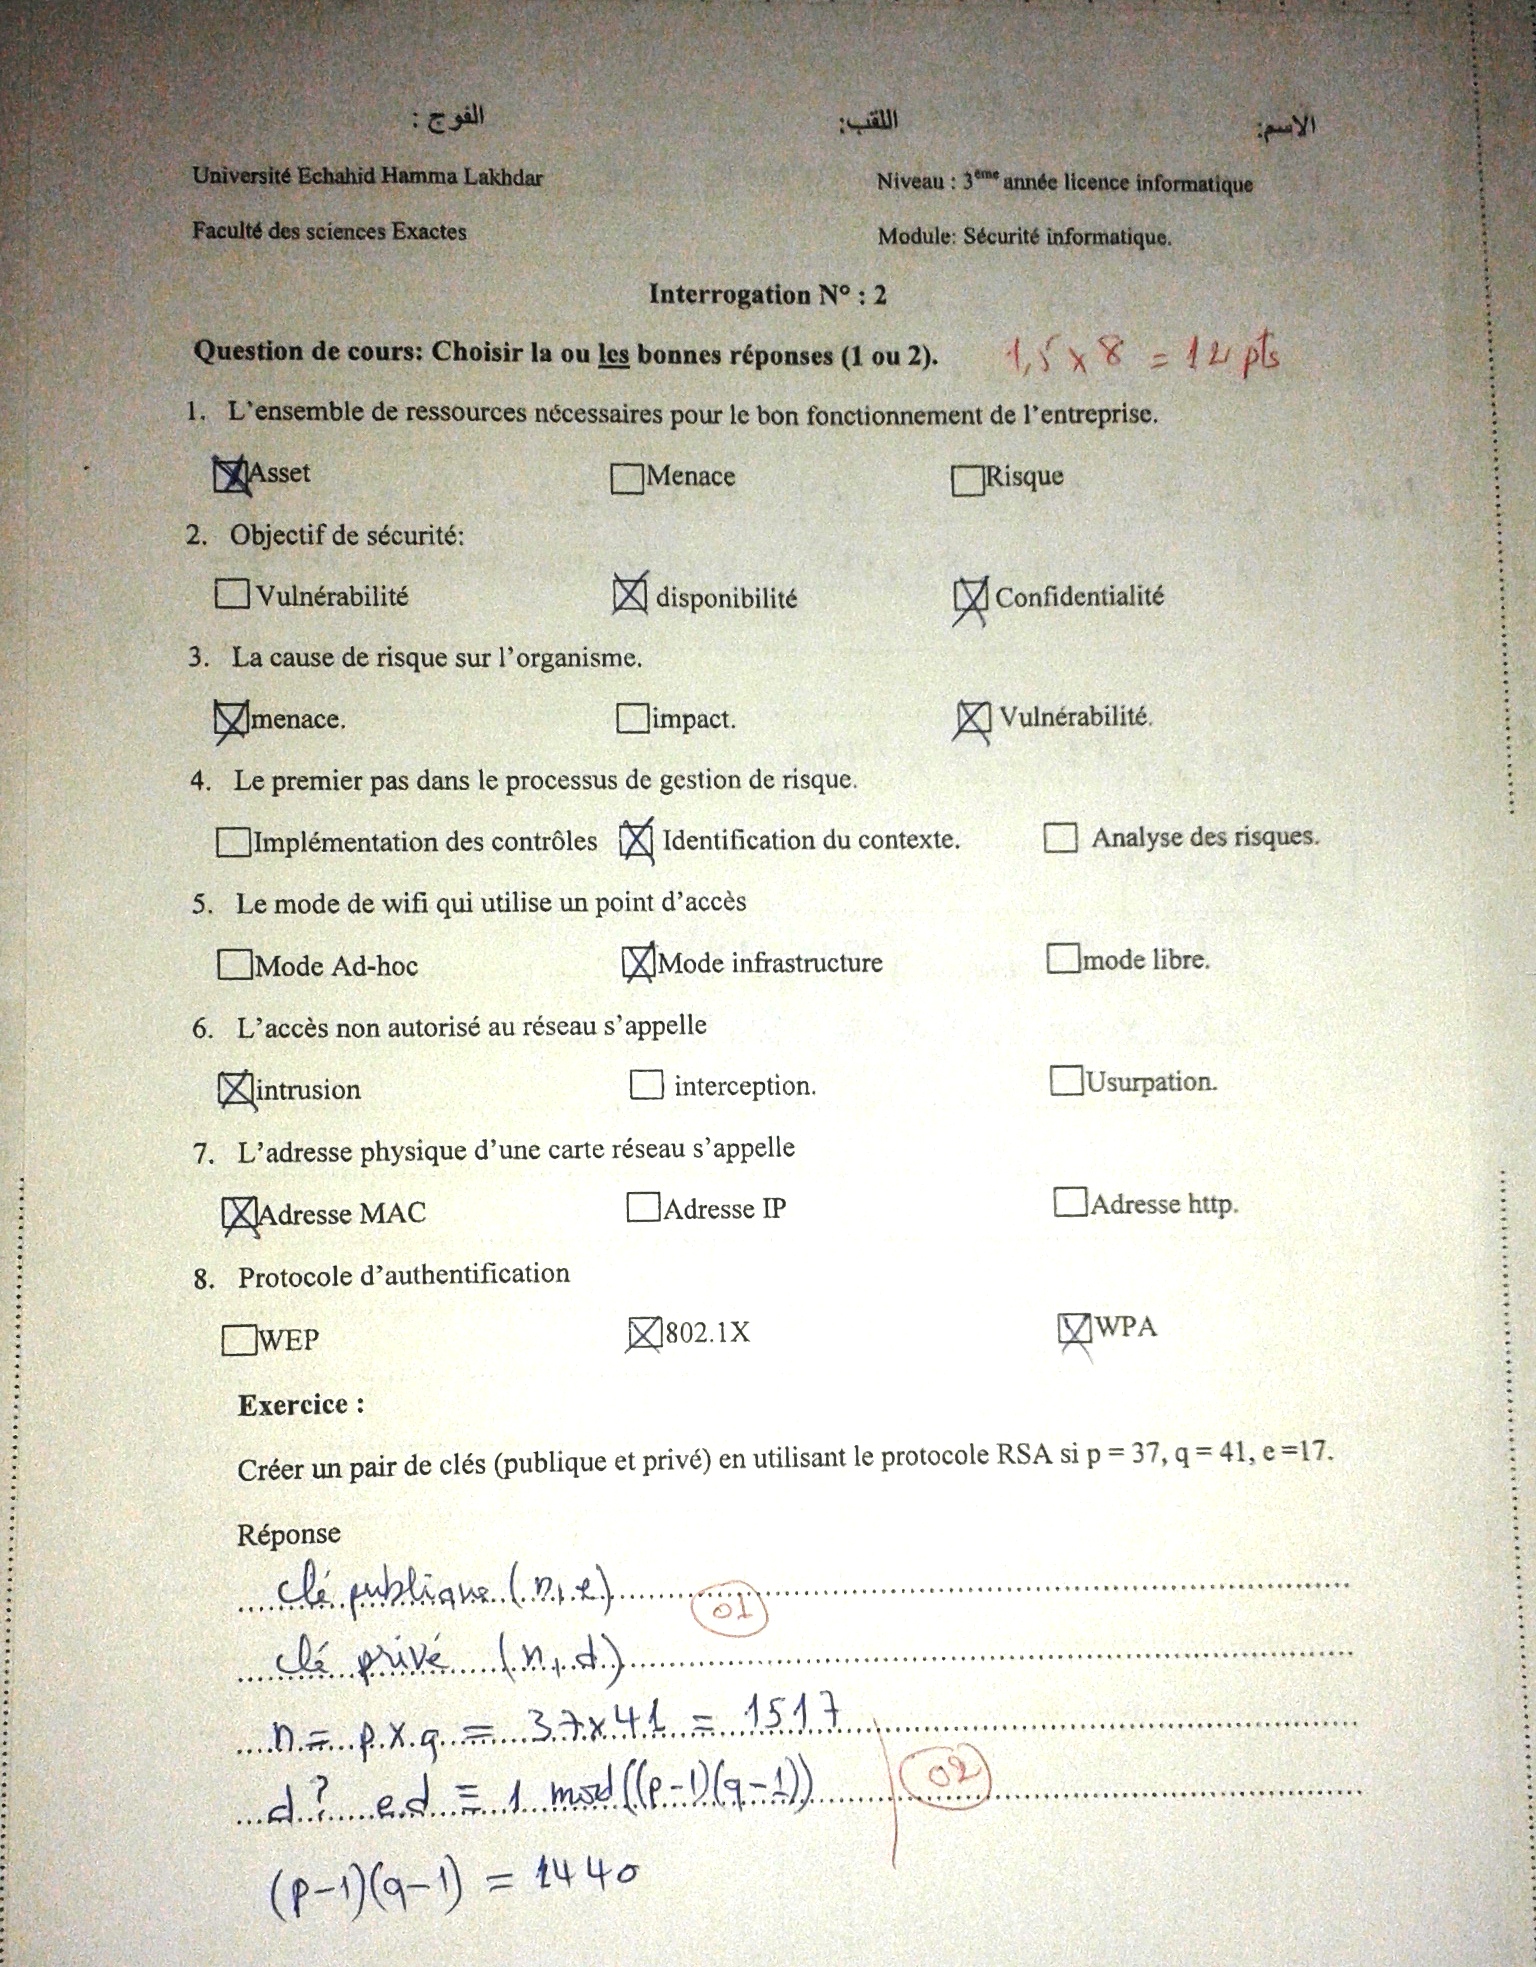 الاسم: اللقب: الفوج :
Université Echahid Hamma Lakhdar Niveau : 3ème année licence informatique
Faculté des sciences Exactes Module: Sécurité informatique.
Interrogation N° : 2
Question de cours: Choisir la ou les bonnes réponses (1 ou 2). 1,5 x 8 = 12 pts
1. L'ensemble de ressources nécessaires pour le bon fonctionnement de l'entreprise.
Asset Menace Risque
2. Objectif de sécurité:
Vulnérabilité disponibilité Confidentialité
3. La cause de risque sur l'organisme.
menace. impact. Vulnérabilité.
4. Le premier pas dans le processus de gestion de risque.
Implémentation des contrôles Identification du contexte. Analyse des risques.
5. Le mode de wifi qui utilise un point d'accès
Mode Ad-hoc Mode infrastructure mode libre.
6. L'accès non autorisé au réseau s'appelle
intrusion interception. Usurpation.
7. L'adresse physique d'une carte réseau s'appelle
Adresse MAC Adresse IP Adresse http.
8. Protocole d'authentification
WEP 802.1X WPA
Exercice :
Créer un pair de clés (publique et privé) en utilisant le protocole RSA si p = 37, q = 41, e =17.
Réponse
clé publique (n, e) 01
clé privé (n, d)
n = p x q = 37x41 = 1517
d? e.d ≡ 1 mod ((p-1)(q-1)) 02
(p-1)(q-1) = 1440